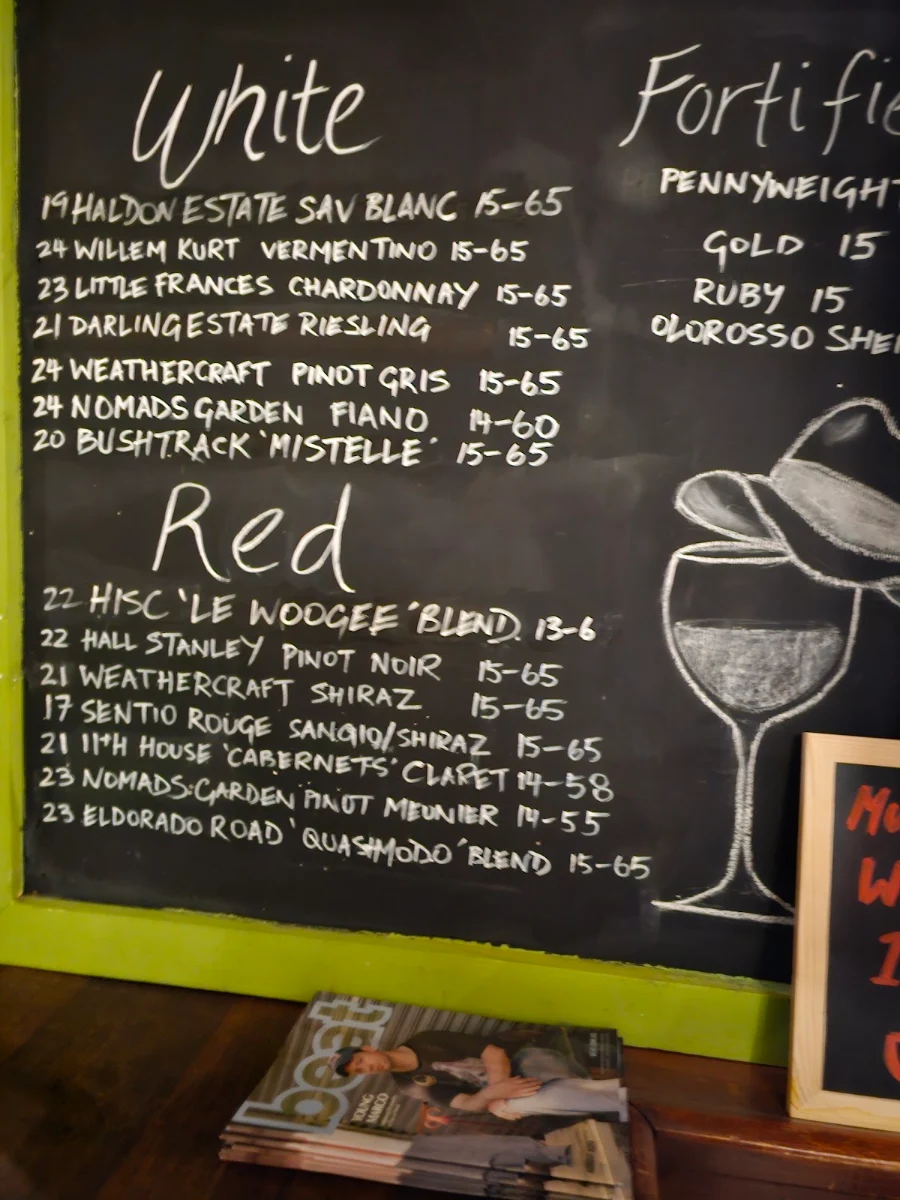 White
19 HALDON ESTATE SAV BLANC 15-65
24 WILLEM KURT VERMENTINO 15-65
23 LITTLE FRANCES CHARDONNAY 15-65
21 DARLING ESTATE RIESLING 15-65
24 WEATHERCRAFT PINOT GRIS 15-65
24 NOMADS GARDEN FIANO 14-60
20 BUSHTRACK 'MISTELLE' 15-65
Red
22 HISC 'LE WOOGEE' BLEND 13-6
22 HALL STANLEY PINOT NOIR 15-65
21 WEATHERCRAFT SHIRAZ 15-65
17 SENTIO ROUGE SANGIO/SHIRAZ 15-65
21 11TH HOUSE 'CABERNETS' CLARET 14-58
23 NOMADS GARDEN PINOT MEUNIER 14-55
23 ELDORADO ROAD 'QUASIMODO' BLEND 15-65
Fortifie
PENNYWEIGHT
GOLD 15
RUBY 15
OLOROSSO SHE
beat
YOUNG
MARCO